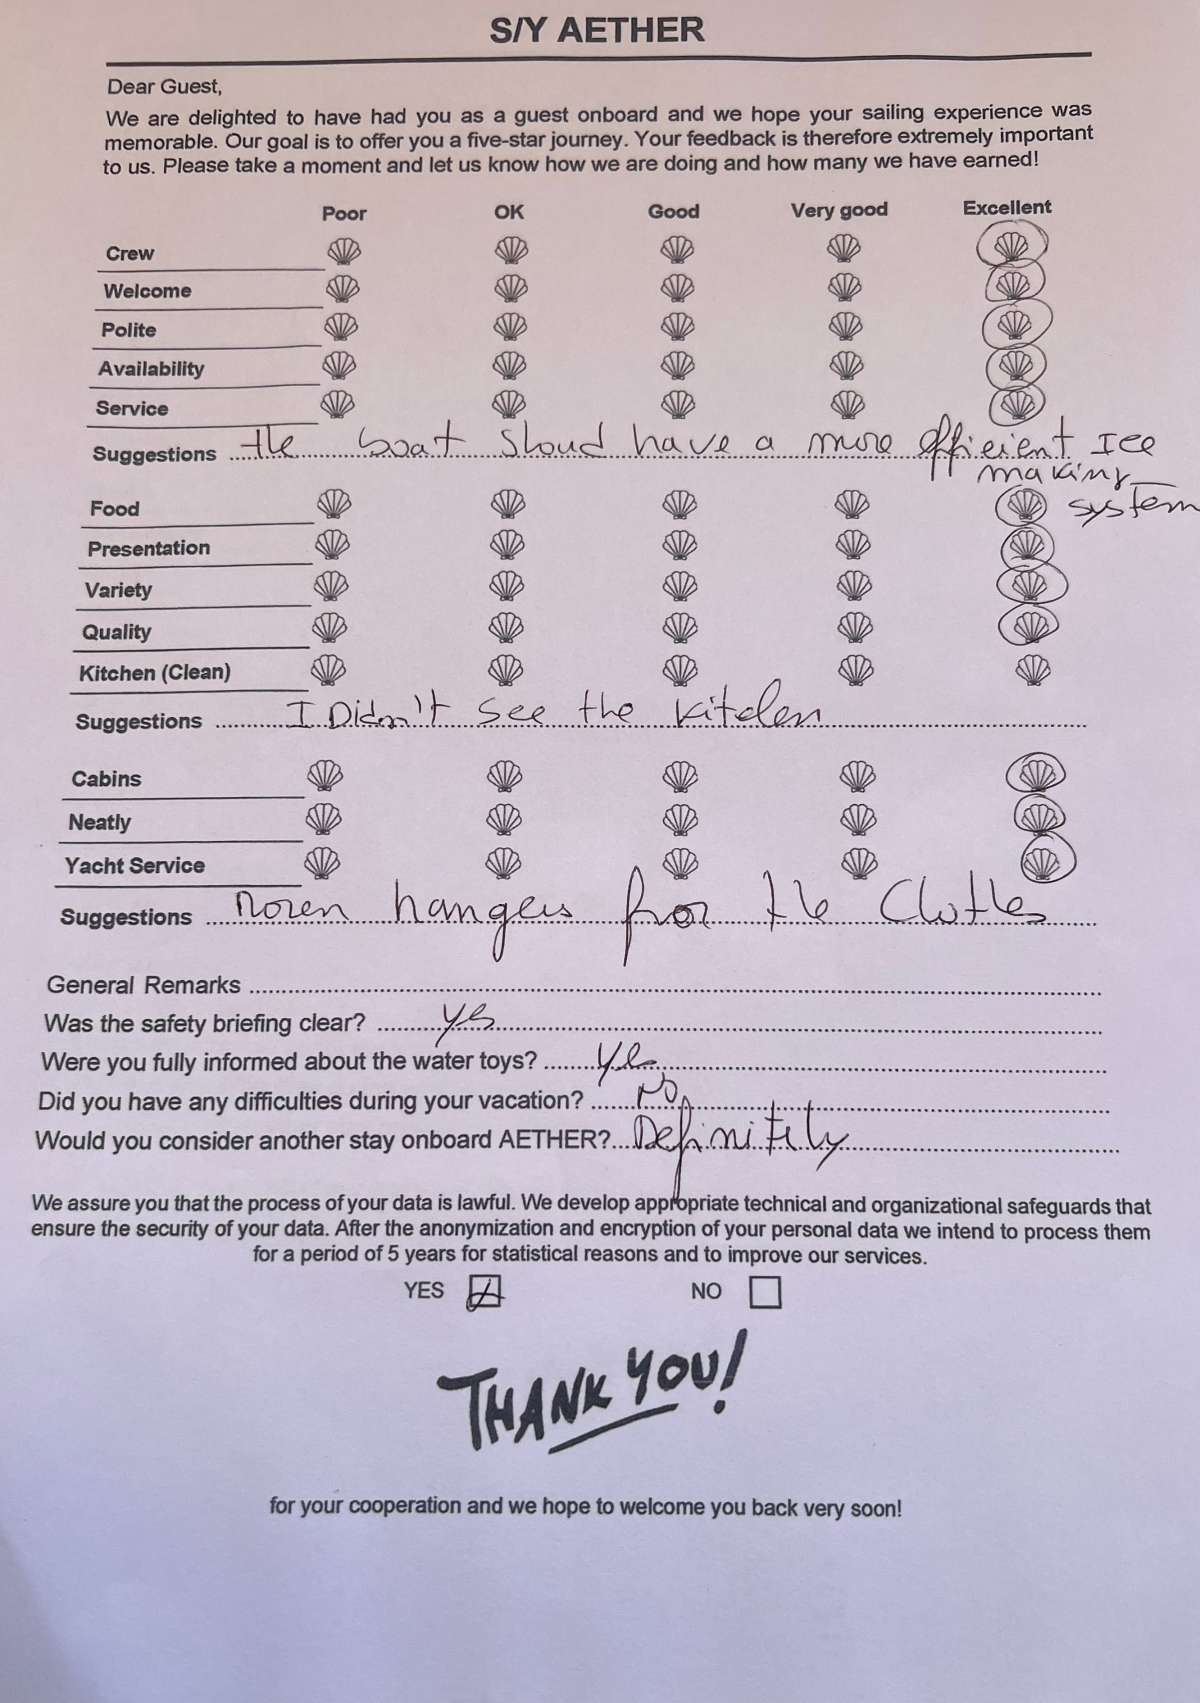 S/Y AETHER
Dear Guest,
We are delighted to have had you as a guest onboard and we hope your sailing experience was
memorable. Our goal is to offer you a five-star journey. Your feedback is therefore extremely important
to us. Please take a moment and let us know how we are doing and how many we have earned!
Poor OK Good Very good Excellent
Crew
Welcome
Polite
Availability
Service
Suggestions the boat shoud have a more efficient Ice
making
Food system
Presentation
Variety
Quality
Kitchen (Clean)
Suggestions I Didn't see the kitchen
Cabins
Neatly
Yacht Service
Suggestions hangers for the Clothes
General Remarks
Was the safety briefing clear? yes
Were you fully informed about the water toys? yes
Did you have any difficulties during your vacation? No
Would you consider another stay onboard AETHER? Definitely
We assure you that the process of your data is lawful. We develop appropriate technical and organizational safeguards that
ensure the security of your data. After the anonymization and encryption of your personal data we intend to process them
for a period of 5 years for statistical reasons and to improve our services.
YES NO
THANK YOU!
for your cooperation and we hope to welcome you back very soon!